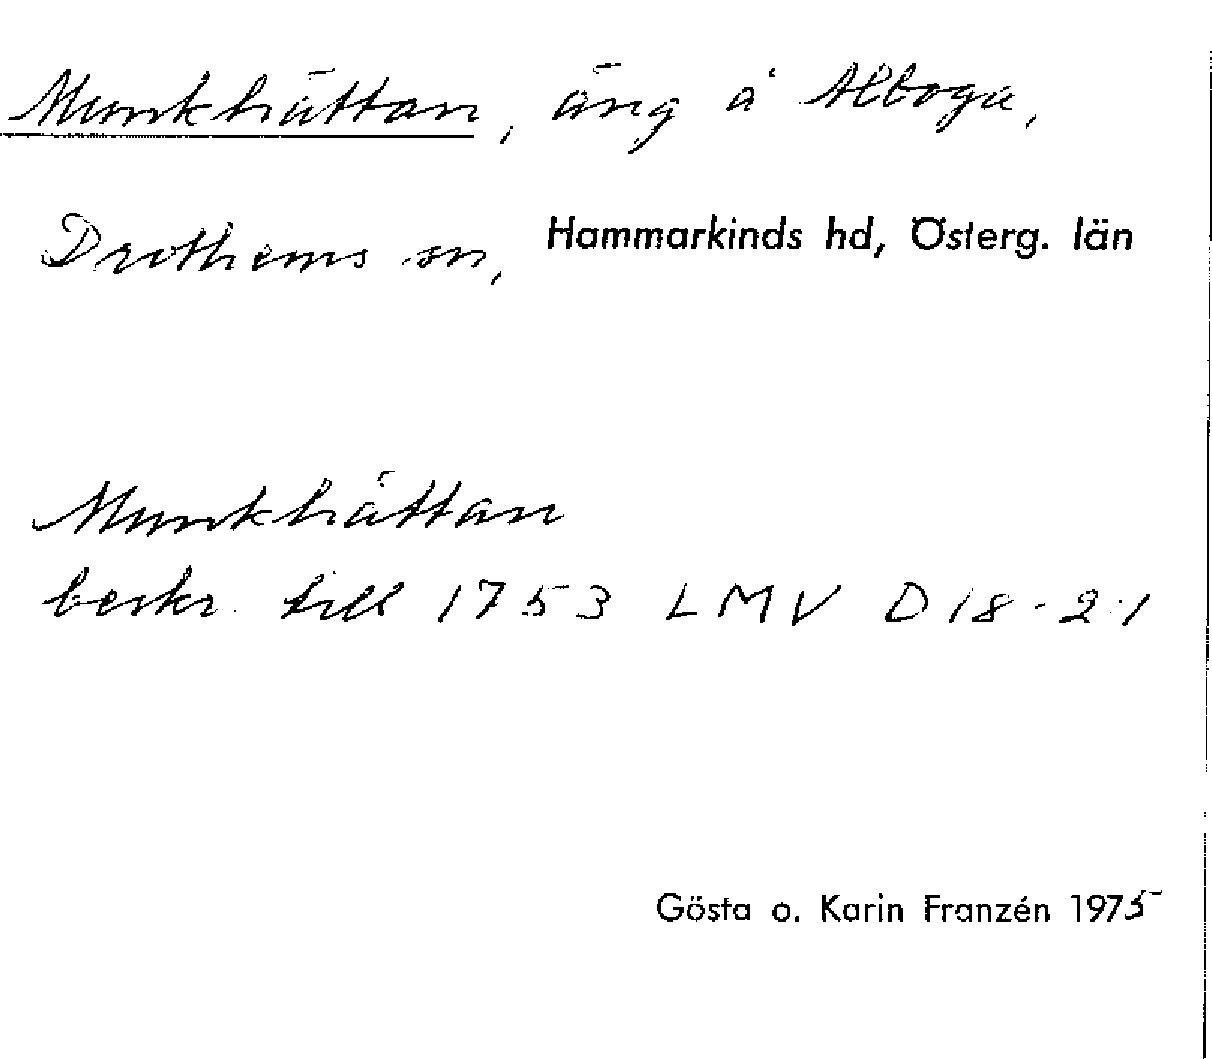 Munkhättan, äng å Alboga,
Drothems sn, Hammarkinds hd, Österg. län
Munkhättan
beskr. till 1753 LMV D 18-2:1
Gösta o. Karin Franzén 1975